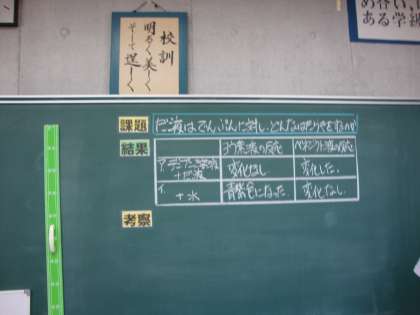 校訓
明るく美しく
そして逞しく
ある学
課題
だ液は、でんぷんに対し、どんなはたらきをするのか
結果
ヨウ素液の反応
ベネジクト液の反応
ア. デンプン溶液
+だ液
変化なし
変化した。
イ.
+水
青紫色になった
変化なし
考察